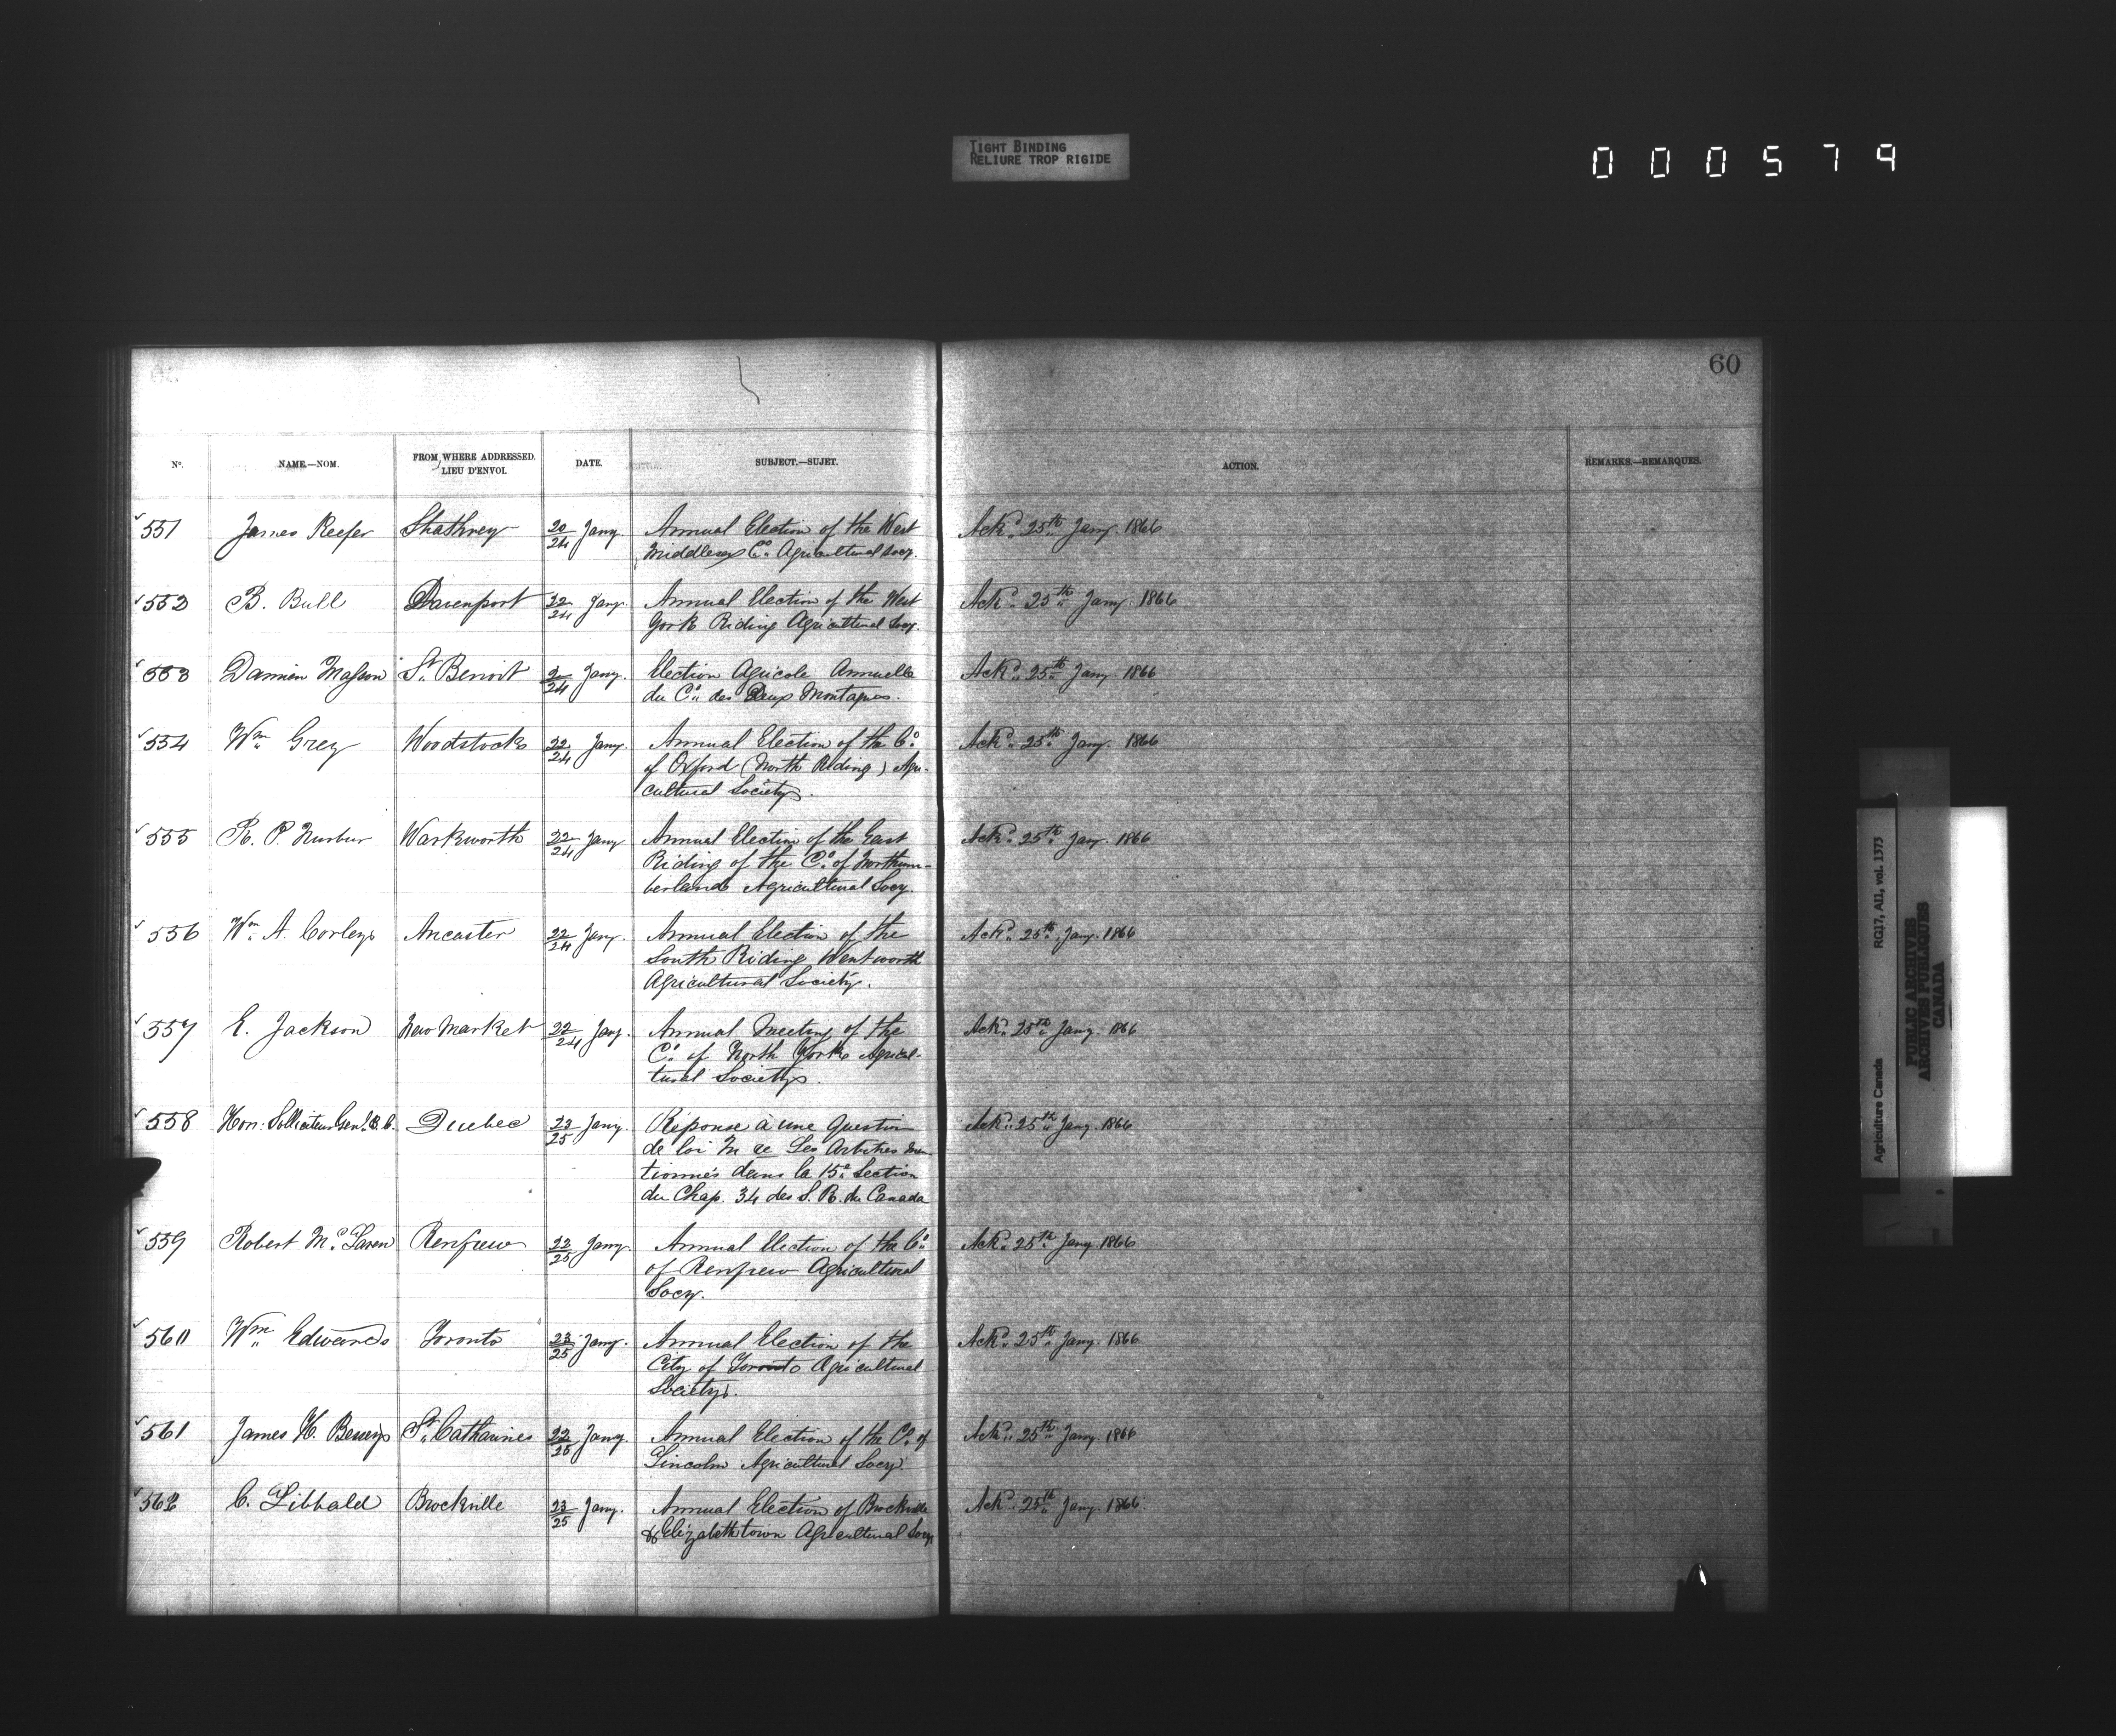 TIGHT BINDING
RELIURE TROP RIGIDE
000579
60
No. NAME.—NOM. FROM WHERE ADDRESSED. LIEU D'ENVOI. DATE. SUBJECT.—SUJET. ACTION. REMARKS.—REMARQUES.
551 James Keefer Strathrey 20/24 Jany. Annual Election of the West Ackd. 25th Jany. 1866
Middlesex Co. Agricultural Socy.
552 B. Bull Davenport 22/24 Jany. Annual Election of the West Ackd. 25th Jany. 1866
York Riding Agricultural Socy.
553 Damien Masson St. Benoit 2/24 Jany. Election Agricole Annuelle Ackd. 25th Jany 1866
du Co. des Deux Montagnes.
554 Wm. Grey Woodstock 22/24 Jany. Annual Election of the Co. Ackd. 25th Jany. 1866
of Oxford (North Riding) Agri-
cultural Society.
555 R. P. Warkworth 22/24 Jany Annual Election of the East Ackd. 25th Jany. 1866
Riding of the Co. of Northum-
berland Agricultural Socy.
556 Wm. A. Corley Ancaster 22/24 Jany. Annual Election of the Ackd. 25th Jany. 1866
South Riding Wentworth
Agricultural Society.
557 E. Jackson New Market 22/24 Jany. Annual Meeting of the Ackd. 25th Jany. 1866
Co. of North York Agricul-
tural Society.
558 Hon: Solliciteur Genl. B. C. Quebec 23/25 Jany. Réponse à une Question Ackd. 25th Jany. 1866
de loi Les Arbitres men
tionnés dans la 15e Section
du Chap. 34 des S. R. du Canada
559 Robert McLaren Renfrew 22/25 Jany. Annual Election of the Co. Ackd. 25th Jany. 1866
of Renfrew Agricultural
Socy.
560 Wm. Edwards Toronto 23/25 Jany. Annual Election of the Ackd. 25th Jany. 1866
City of Toronto Agricultural
Society.
561 James H. St. Catharines 22/25 Jany. Annual Election of the Co. of Ackd. 25th Jany. 1866
Lincoln Agricultural Socy.
562 C. Brockville 23/25 Jany. Annual Election of Brockville Ackd. 25th Jany. 1866
& Elizabethtown Agricultural Socy.
Agriculture Canada RG17, AI1, vol. 1373
PUBLIC ARCHIVES
ARCHIVES PUBLIQUES
CANADA